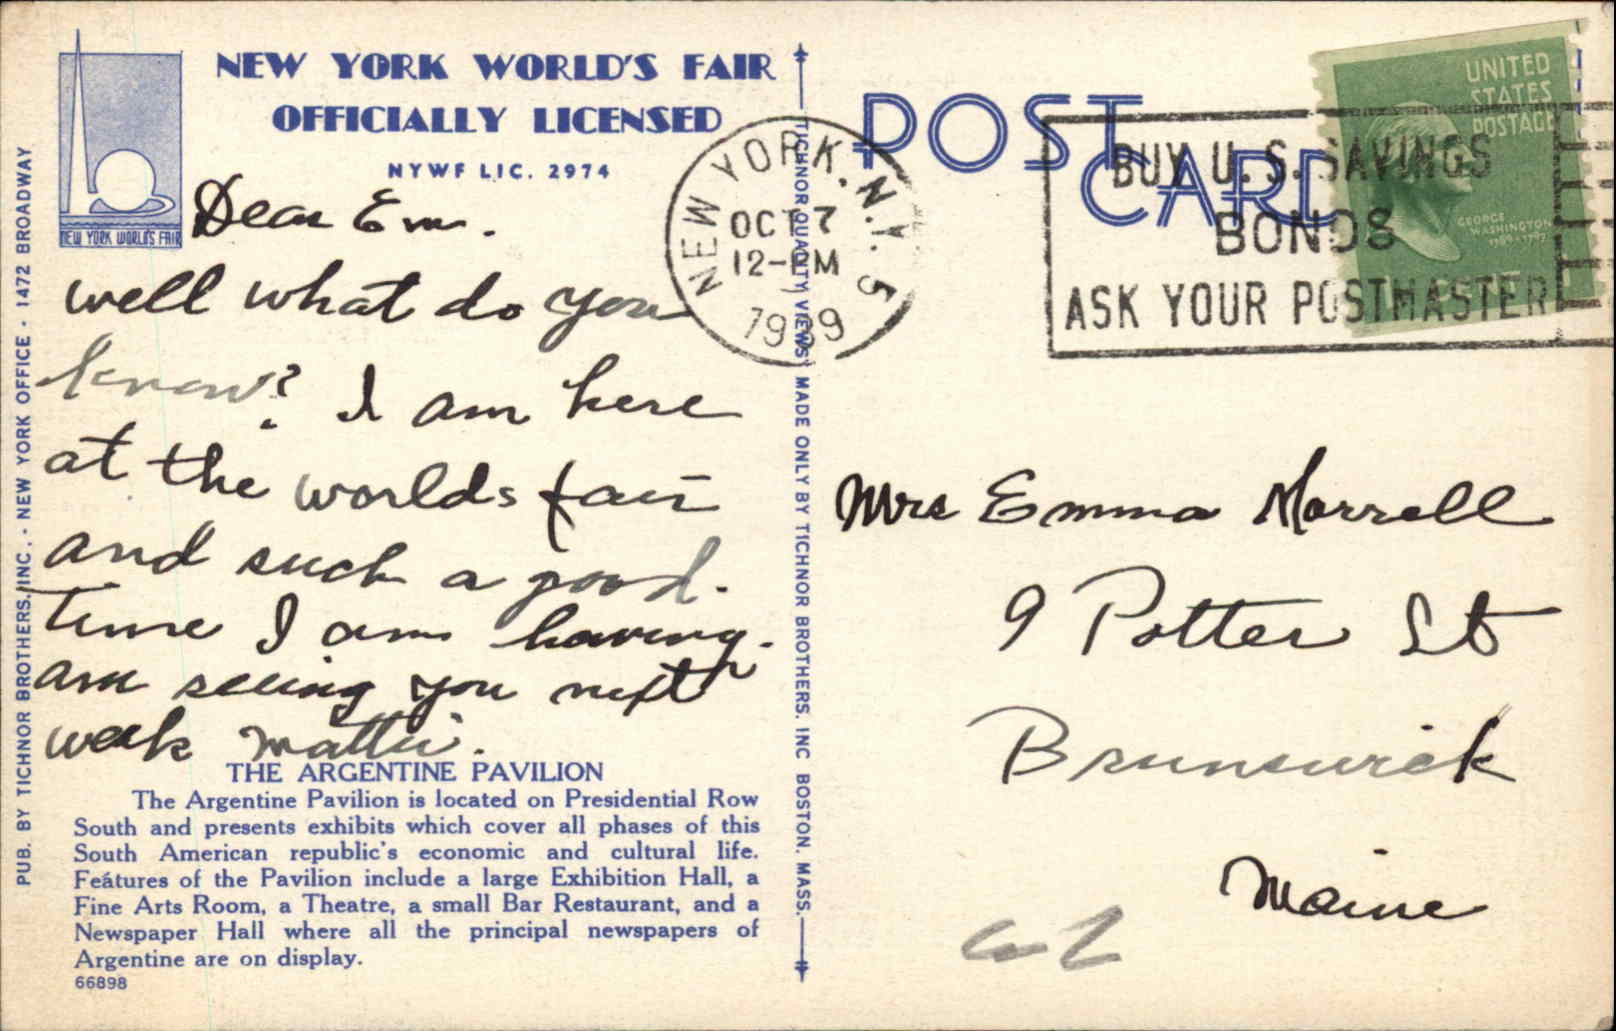 NEW YORK WORLD'S FAIR
OFFICIALLY LICENSED
NYWF LIC. 2974
NEW YORK WORLD'S FAIR
Dear Em.
well what do you
know? I am here
at the worlds fair
and such a good.
time I am having.
am seeing you next
week Mattie.
THE ARGENTINE PAVILION
The Argentine Pavilion is located on Presidential Row
South and presents exhibits which cover all phases of this
South American republic's economic and cultural life.
Features of the Pavilion include a large Exhibition Hall, a
Fine Arts Room, a Theatre, a small Bar Restaurant, and a
Newspaper Hall where all the principal newspapers of
Argentine are on display.
66898
PUB. BY TICHNOR BROTHERS, INC. - NEW YORK OFFICE - 1472 BROADWAY
TICHNOR QUALITY VIEWS MADE ONLY BY TICHNOR BROTHERS. INC BOSTON. MASS.
NEW YORK, N.Y. 5
OCT 7
12-PM
1939
POST
CARD
BUY U. S. SAVINGS
BONDS
ASK YOUR POSTMASTER
UNITED
STATES
POSTAGE
GEORGE
WASHINGTON
1789-1797
Mrs Emma Morrell
9 Potter St
Brunswick
Maine